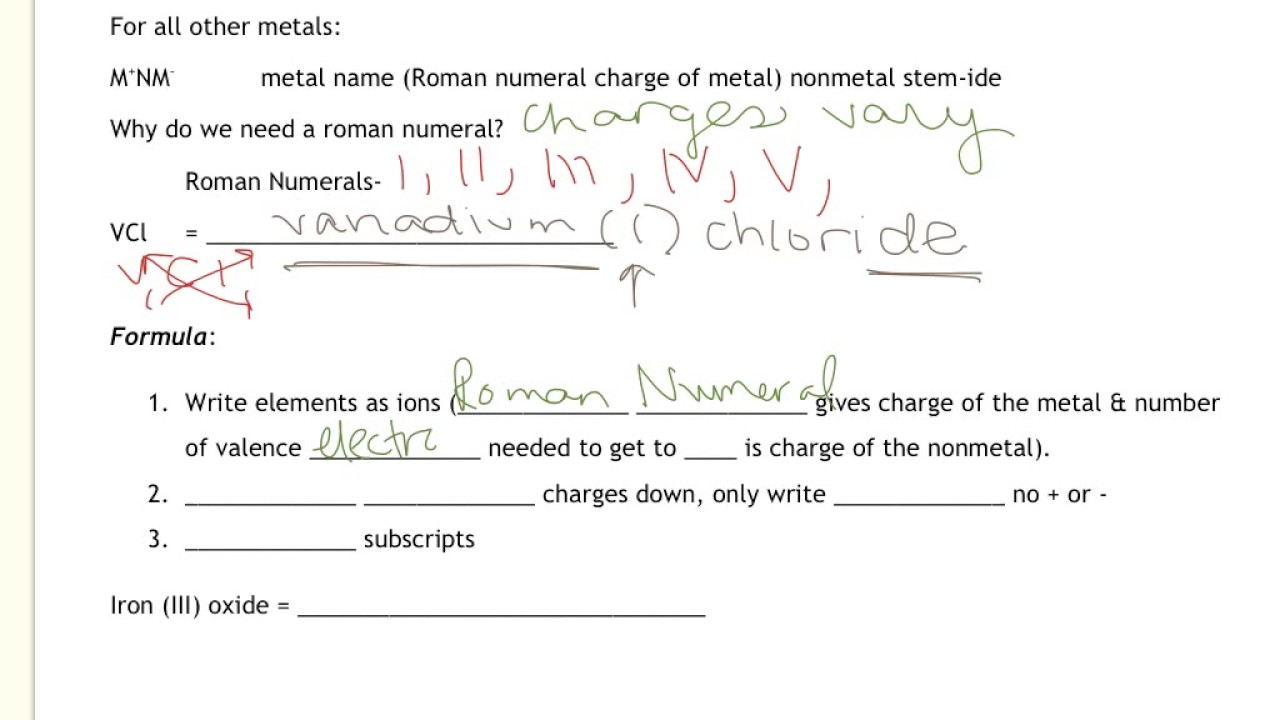 For all other metals:
M⁺NM⁻ metal name (Roman numeral charge of metal) nonmetal stem-ide
Why do we need a roman numeral? charges vary
Roman Numerals- I, II, III, IV, V,
VCl = vanadium (I) chloride
V Cl
Formula:
1. Write elements as ions (Roman Numeral gives charge of the metal & number
of valence electr needed to get to ____ is charge of the nonmetal).
2. ____________ ____________ charges down, only write ____________ no + or -
3. ____________ subscripts
Iron (III) oxide = ____________